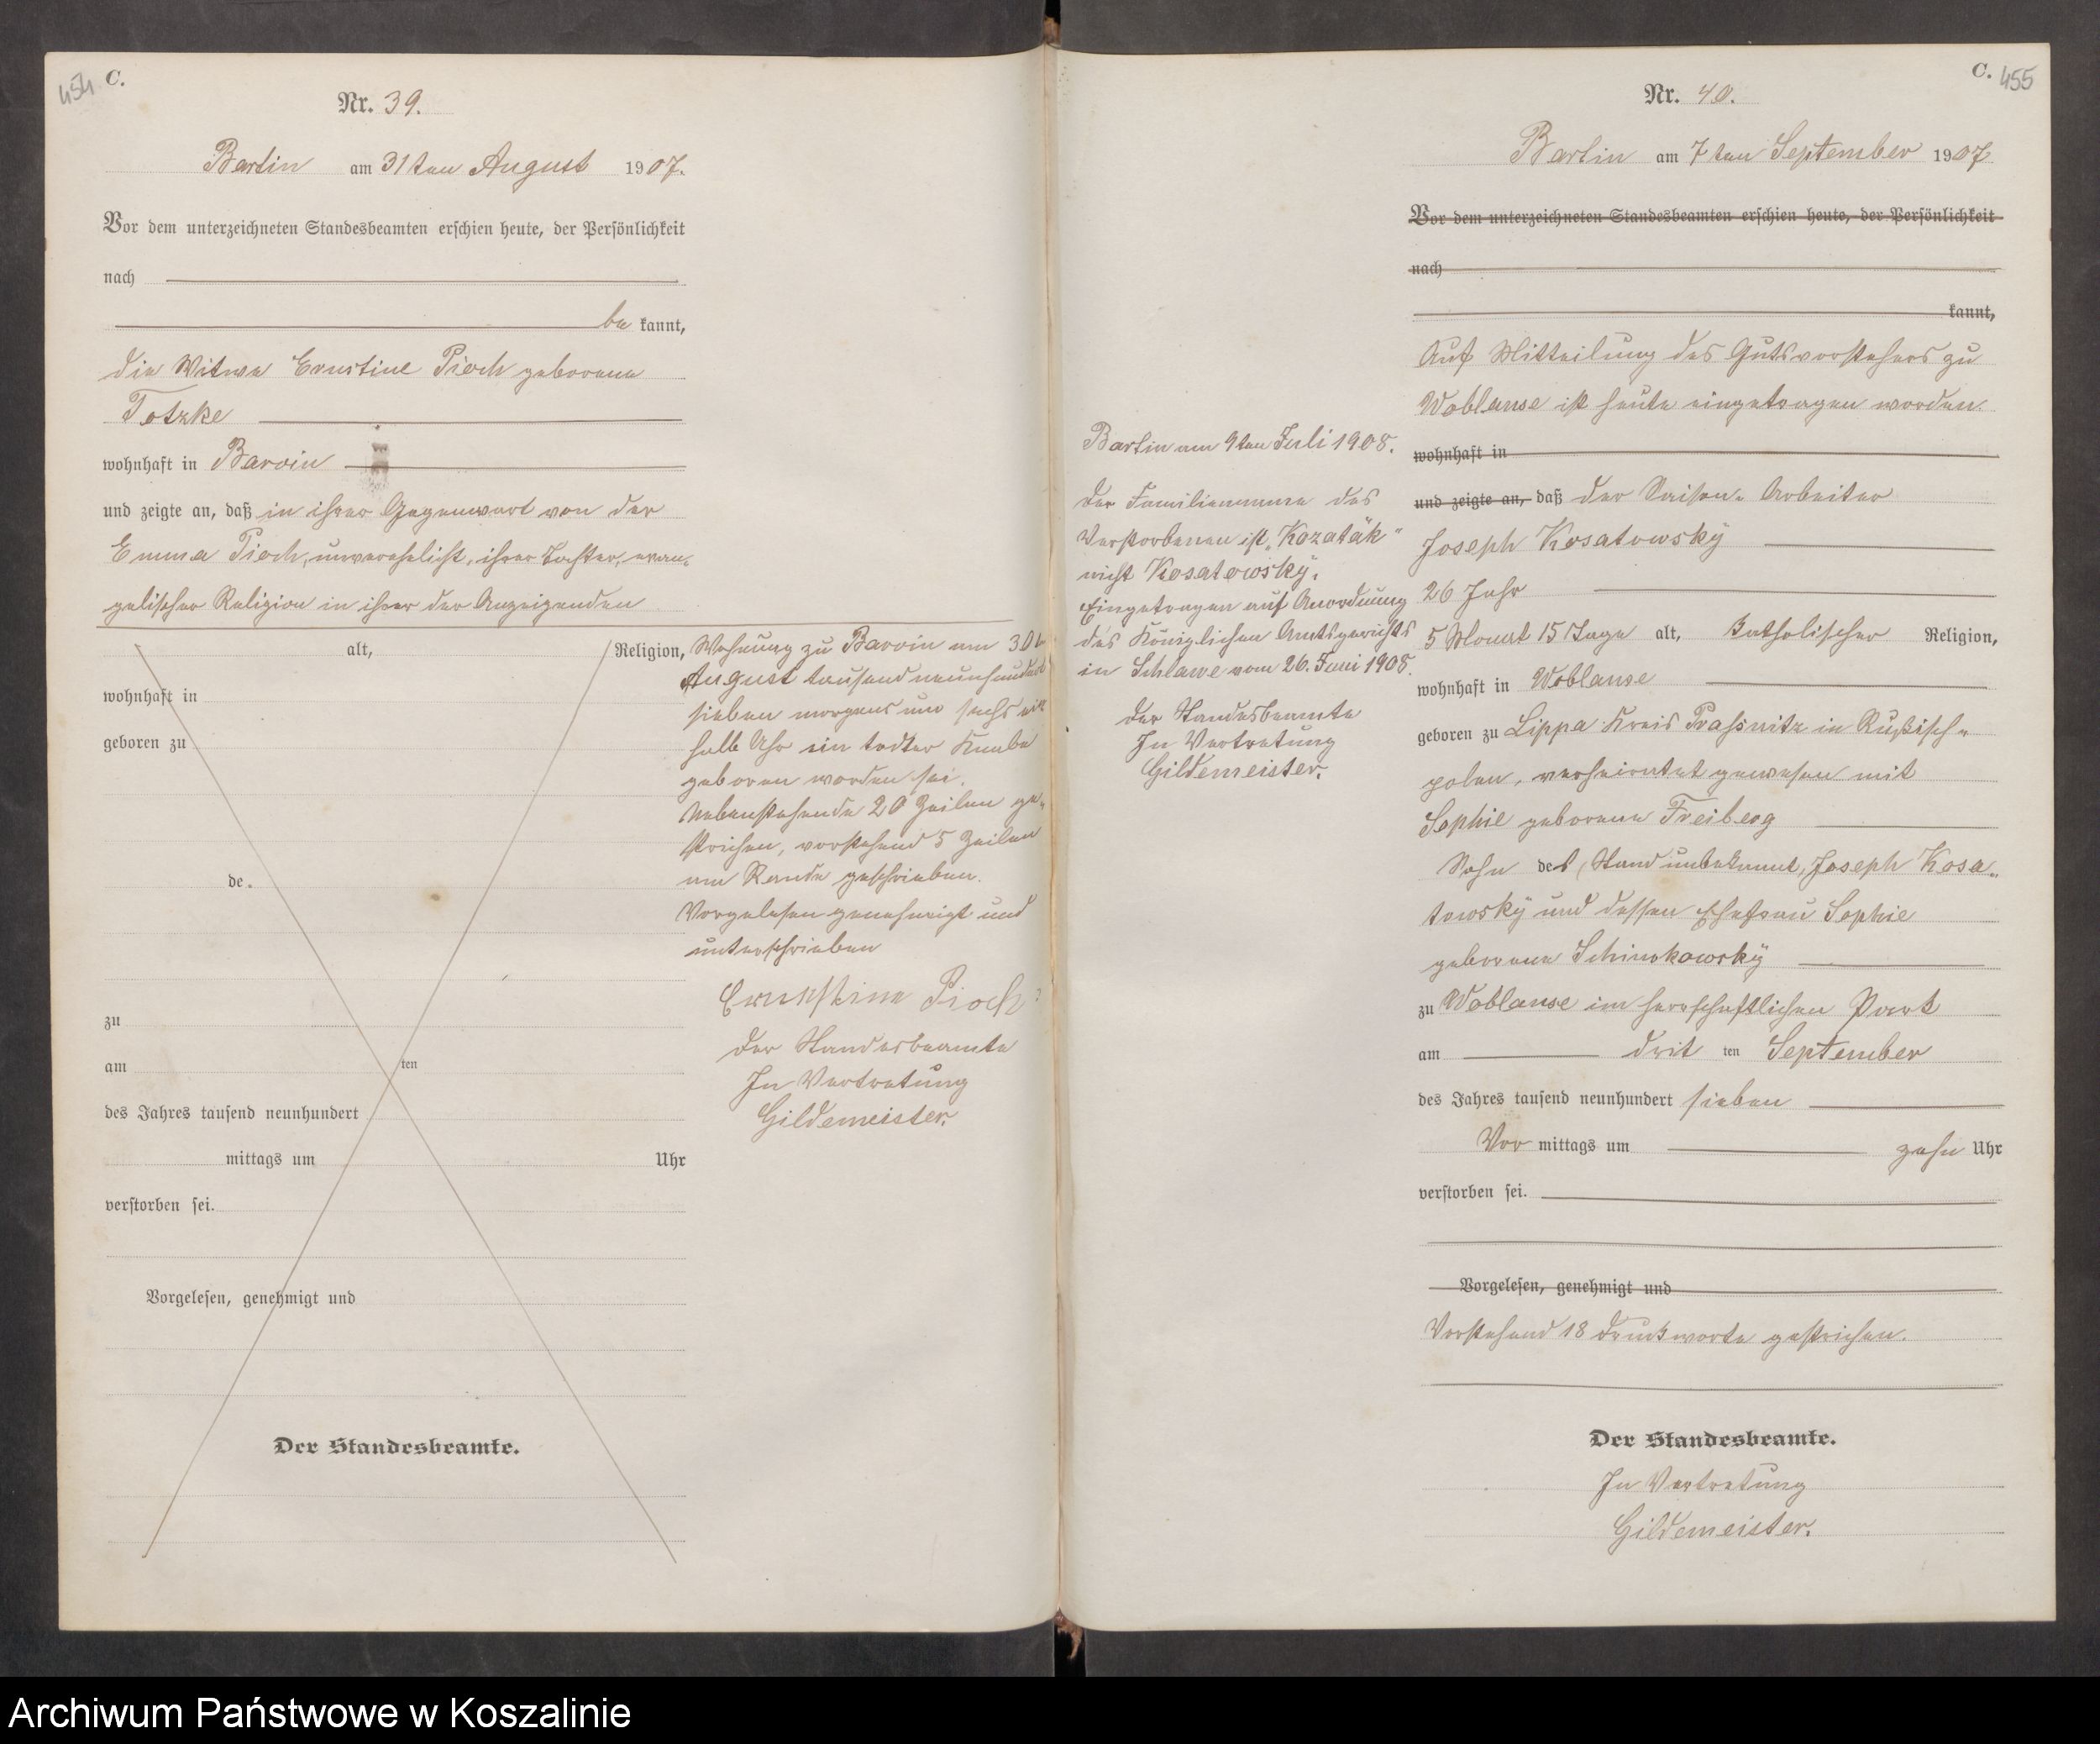 454 C.
Nr. 39.
Bartin am 31ten August 1907.
Vor dem unterzeichneten Standesbeamten erschien heute, der Persönlichkeit
nach
be kannt,
die Witwe Ernstine Pioch geborene
Totzke
wohnhaft in Barvin
und zeigte an, daß in ihrer Gegenwart von der
Emma Pioch, unverehelicht, ihrer Tochter, evan-
gelischer Religion in ihrer der Anzeigenden
alt, Religion,
wohnhaft in
geboren zu
de
zu
am ten
des Jahres tausend neunhundert
mittags um Uhr
verstorben sei.
Vorgelesen, genehmigt und
Der Standesbeamte.
Wohnung zu Barvin am 30t
August tausend neunhundert
sieben morgens um sechs ein
halb Uhr ein todter Knabe
geboren worden sei.
Nebenstehende 20 Zeilen ge-
strichen, vorstehend 5 Zeilen
am Rande geschrieben.
Vorgelesen genehmigt und
unterschrieben
Ernestine Pioch
Der Standesbeamte
In Vertretung
Gildemeister.
C. 455
Nr. 40.
Bartin am 7ten September 1907
Vor dem unterzeichneten Standesbeamten erschien heute, der Persönlichkeit
nach
kannt,
Auf Mitteilung des Gutsvorstehers zu
Woblanse ist heute eingetragen worden.
wohnhaft in
und zeigte an, daß der Saison-Arbeiter
Joseph Kosatowsky
26 Jahr
5 Monat 15 Tage alt, katholischer Religion,
wohnhaft in Woblanse
geboren zu Lippa Kreis Prassnitz in Rußisch-
polen, verheiratet gewesen mit
Sophie geborene Freiberg
Sohn des, Stand unbekannt, Joseph Kosa-
towsky und dessen Ehefrau Sophie
geborene Schinkowsky
zu Woblanse im herrschaftlichen Park
am drit ten September
des Jahres tausend neunhundert sieben
Vor mittags um zehn Uhr
verstorben sei.
Vorgelesen, genehmigt und
Vorstehend 18 Druckworte gestrichen.
Der Standesbeamte.
In Vertretung
Gildemeister.
Bartin am 9ten Juli 1908.
Der Familienname des
Verstorbenen ist „Kozaták"
nicht Kosatowsky.
Eingetragen auf Anordnung
des Königlichen Amtsgerichts
in Schlawe vom 26. Juni 1908.
Der Standesbeamte
In Vertretung
Gildemeister.
Archiwum Państwowe w Koszalinie